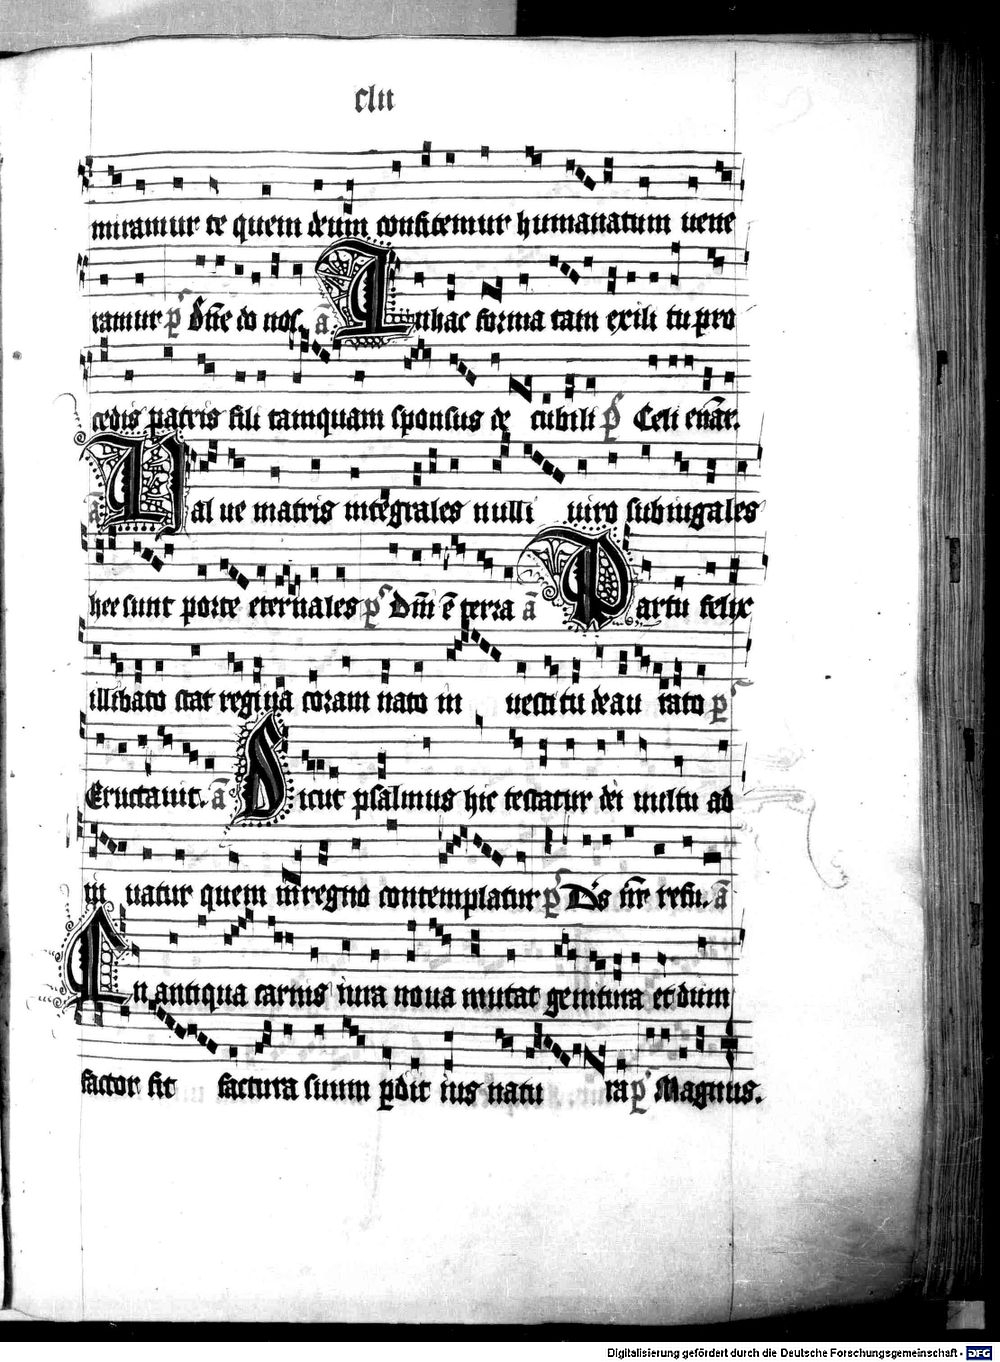 clii
miramur te quem deum confitemur humanatum vene
ramur ps Dn̄e do nos. ā In hac forma tam exili tu pro
cedis patris fili tamquam sponsus de cubili ps Celi enar.
ā Valve matris integrales nulli viro subiugales
hee sunt porte eternales ps Dn̄i ē terra ā Partu felix
illibato stat regina coram nato in vestitu deau rato ps
Eructavit. ā Sicut psalmus hic testatur dei vultu ad
iu vatur quem in regno contemplatur ps Ds nr̄ refu. ā
In antiqua carnis iura nova mutat genitura et dum
factor fit factura suum pdit ius natu ra ps Magnus.
Digitalisierung gefördert durch die Deutsche Forschungsgemeinschaft - DFG